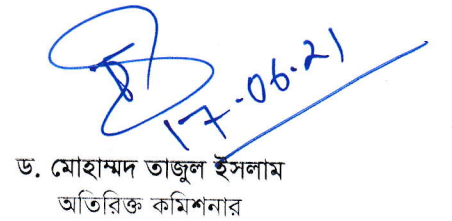 17.06.21
ড. মোহাম্মদ তাজুল ইসলাম
অতিরিক্ত কমিশনার